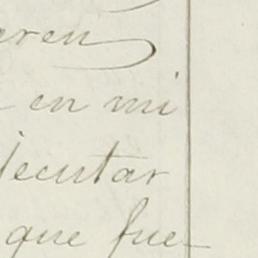 eren
en mi
ecutar
que fue-